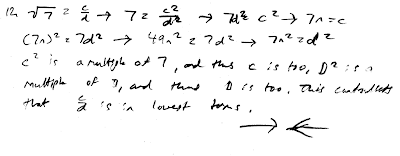 12. √7 = c/d → 7 = c²/d² → 7d² = c² → 7n = c
(7n)² = 7d² → 49n² = 7d² → 7n² = d²
c² is a multiple of 7, and thus c is too, D² is a
multiple of 7, and thus D is too. This contradicts
that c/d is in lowest terms.
→←